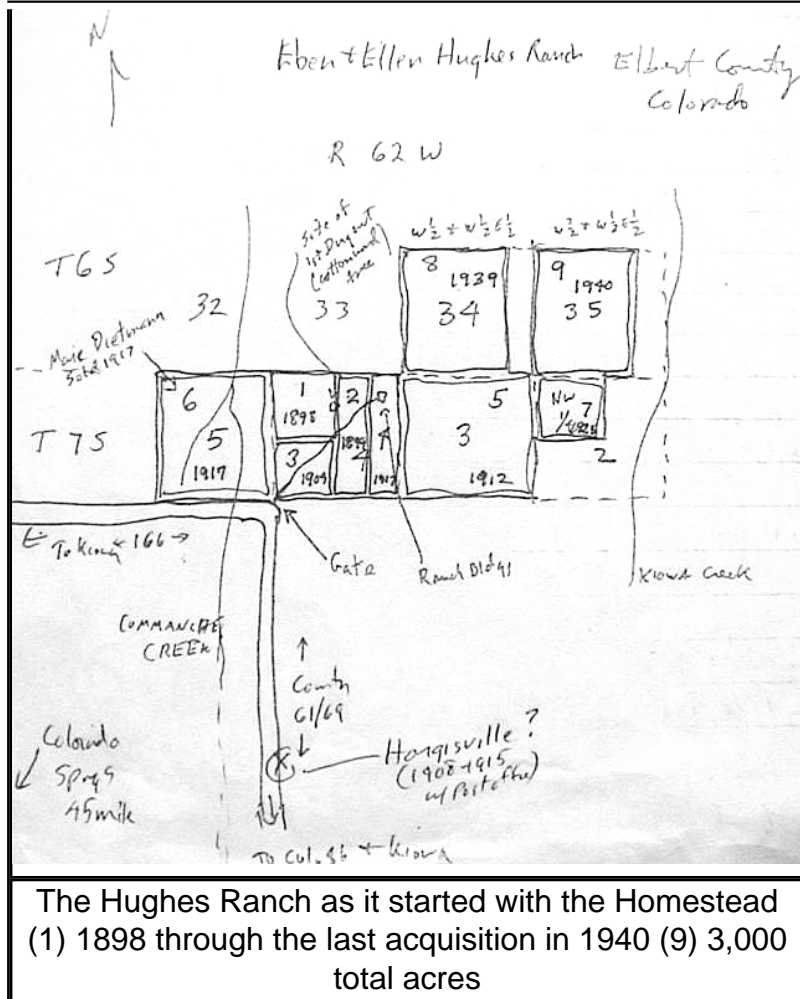 N
Eben + Ellen Hughes Ranch
Elbert County
Colorado
R 62 W
Site of
1st Dugout
(cottonwood
tree
W 1/2 + W 1/2 E 1/2
W 1/2 + W 1/2 E 1/2
T6S
32
33
8
1939
34
9
1940
35
Marie Dietmann
Sold 1917
T 7S
6
5
1917
1
1898
3
1909
2
4
5
3
1912
NW
1/4
7
2
To Kiowa
166
Gate
Ranch Bldgs
Kiowa Creek
COMMANCHE
CREEK
County
61/69
Colorado
Spngs
45 mile
X
Horgisville ?
(1908-1915
w/ Postoffie)
To Col. 86 + Kiowa
The Hughes Ranch as it started with the Homestead
(1) 1898 through the last acquisition in 1940 (9) 3,000
total acres